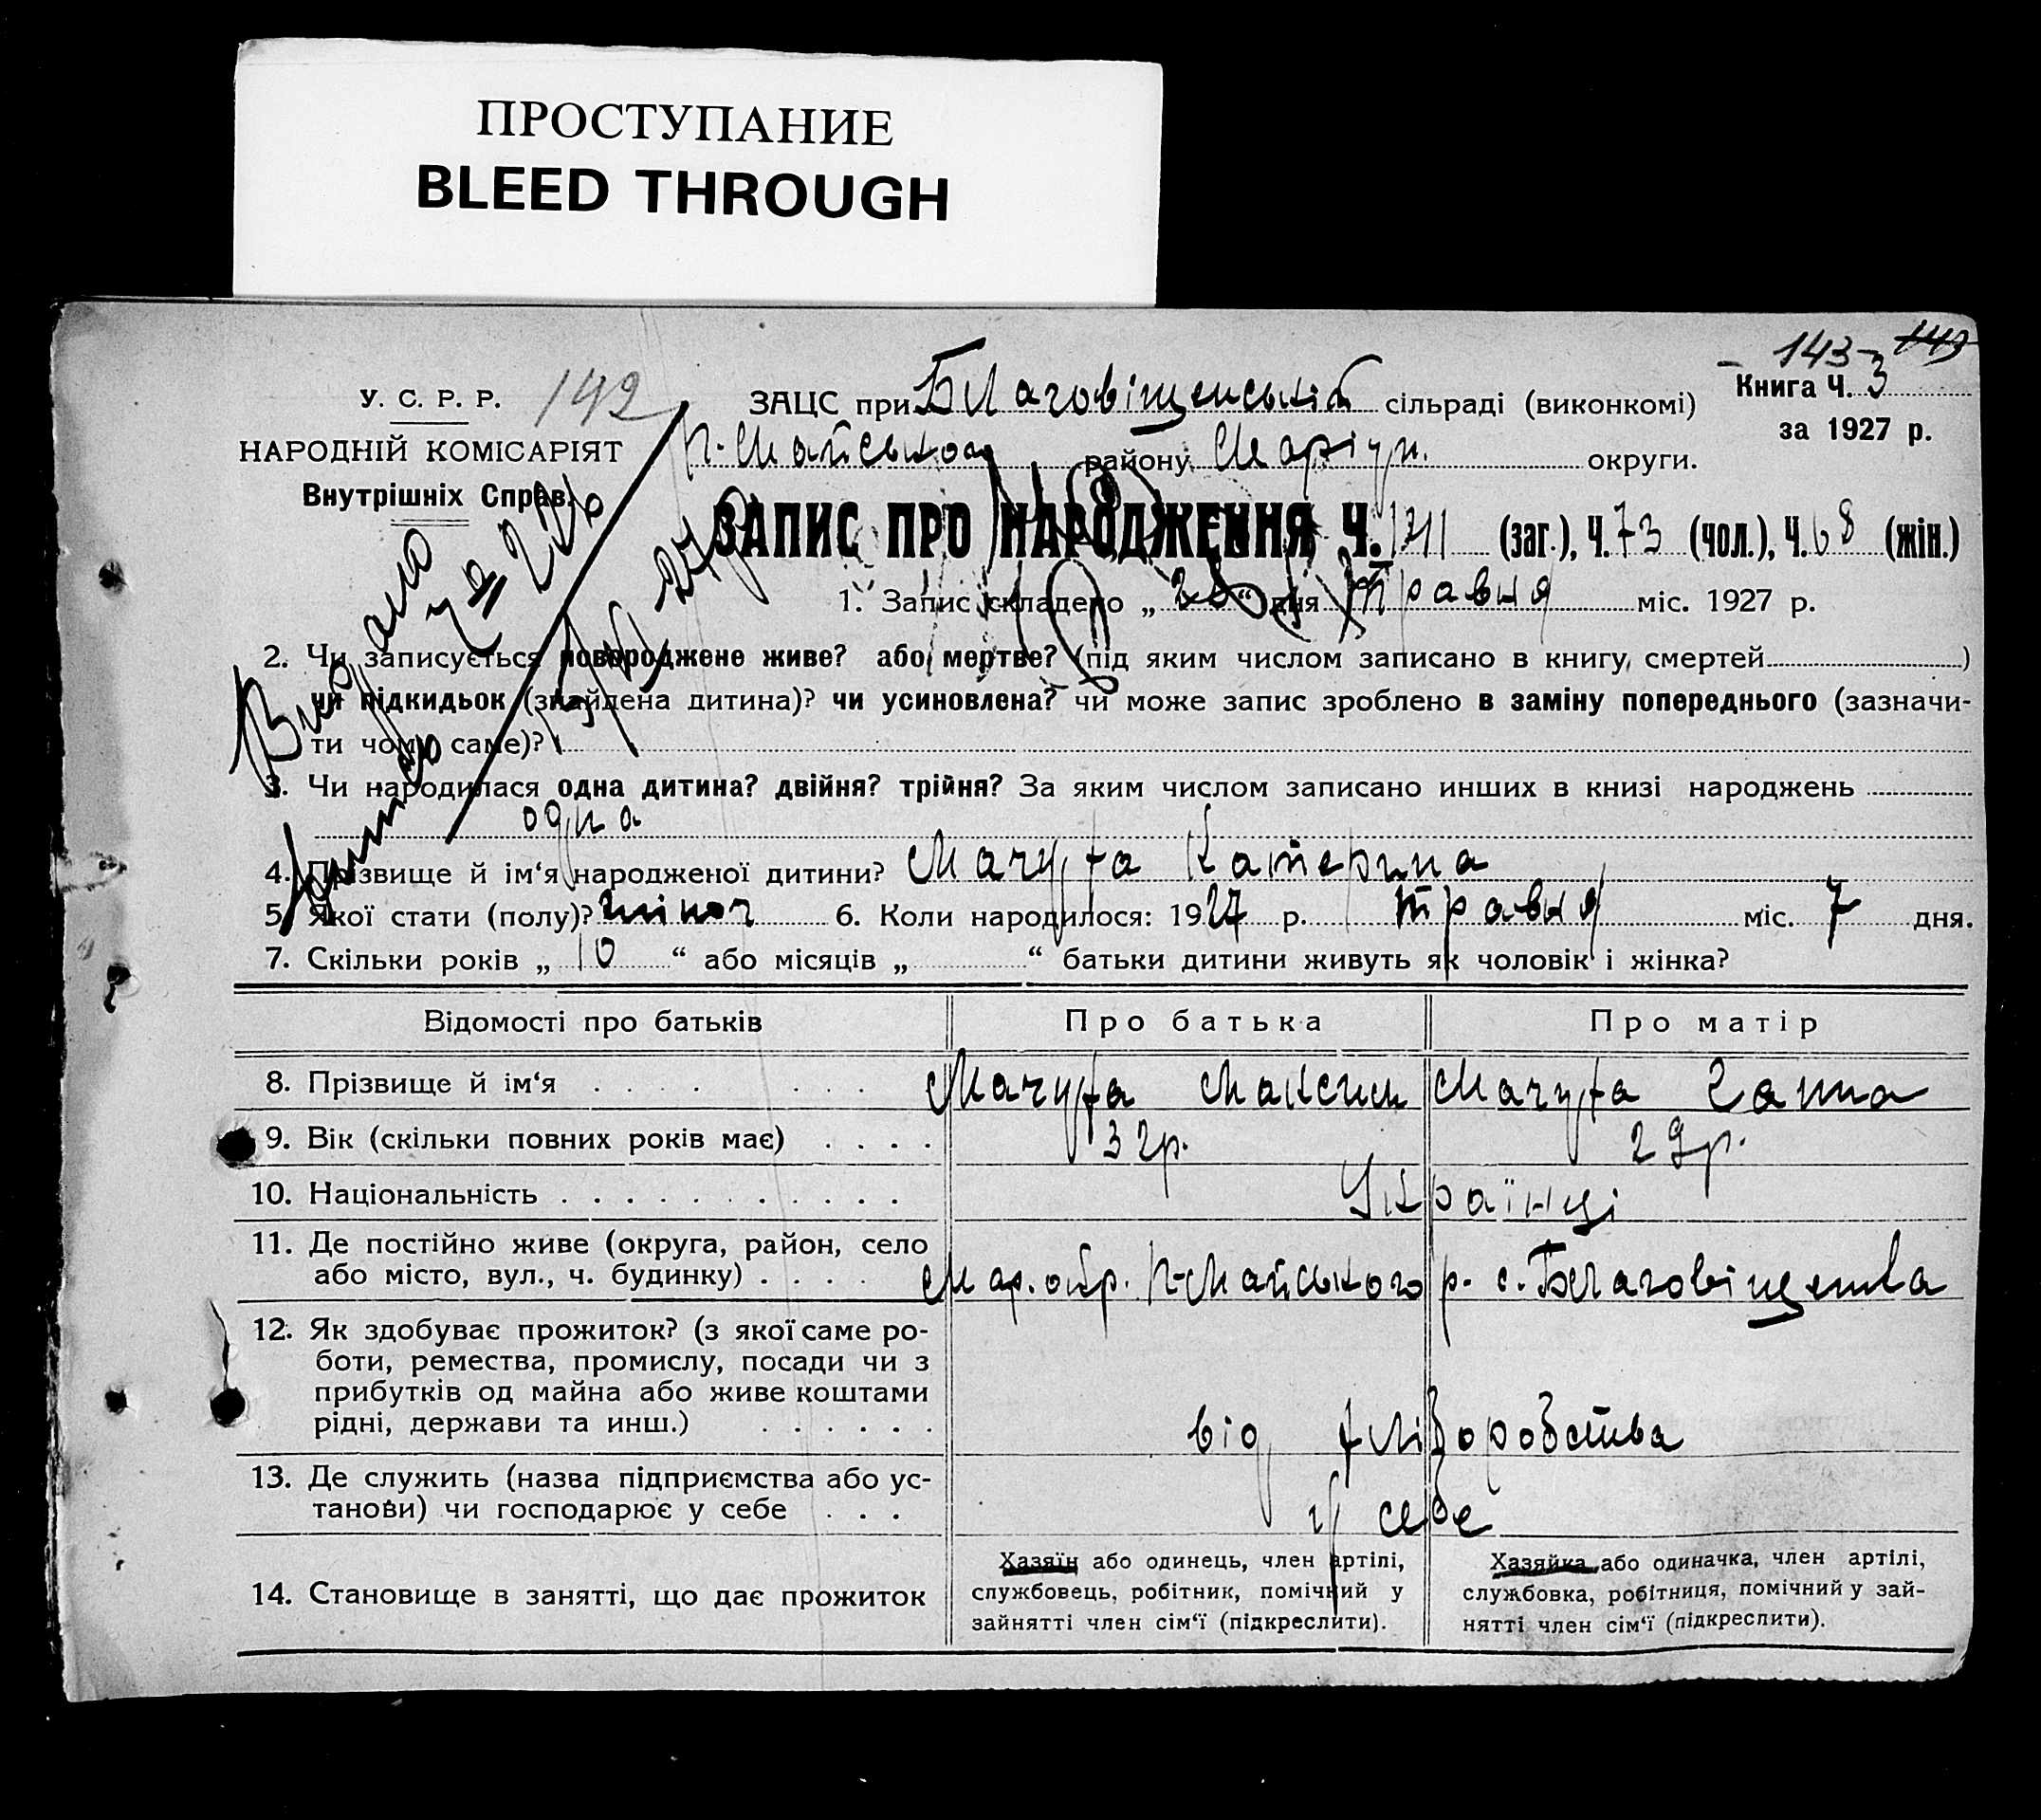 ПРОСТУПАНИЕ
BLEED THROUGH
- 143 - 143
У. С. Р. Р. 142 ЗАЦС при Благовіщенській сільраді (виконкомі) Книга Ч. 3
за 1927 р.
НАРОДНІЙ КОМІСАРІЯТ П.-Майського району Маріуп. округи.
Внутрішніх Справ.
ЗАПИС ПРО НАРОДЖЕННЯ Ч. 141 (заг.), Ч. 73 (чол.), Ч. 68 (жін.)
Видано
1. Запис складено „ “ дня Травня міс. 1927 р.
2. Чи записується новороджене живе? або мертве? (під яким числом записано в книгу смертей )
чи підкидьок (знайдена дитина)? чи усиновлена? чи може запис зроблено в заміну попереднього (зазначи-
ти чому саме)?
3. Чи народилася одна дитина? двійня? трійня? За яким числом записано инших в книзі народжень
одна
4. Прізвище й ім‘я народженої дитини? Мачула Катерина
5. Якої стати (полу)? жіноч 6. Коли народилося: 1927 р. Травня міс. 7 дня.
7. Скільки років „ 10 “ або місяців „ “ батьки дитини живуть як чоловік і жінка?
Відомості про батьків Про батька Про матір
8. Прізвище й ім‘я Максим
9. Вік (скільки повних років має) 32р. 29р.
10. Національність Українці
11. Де постійно живе (округа, район, село
або місто, вул., ч. будинку) Мар. окр. П-Майського р. с. Благовіщенка
12. Як здобуває прожиток? (з якої саме ро-
боти, ремества, промислу, посади чи з
прибутків од майна або живе коштами
рідні, держави та инш.) від хліборобства
13. Де служить (назва підприємства або ус-
танови) чи господарює у себе у себе
14. Становище в занятті, що дає прожиток
Хазяїн або одинець, член артілі,
службовець, робітник, помічний у
зайнятті член сім‘ї (підкреслити).
Хазяйка або одиначка, член артілі,
службовка, робітниця, помічний у зай-
нятті член сім‘ї (підкреслити).